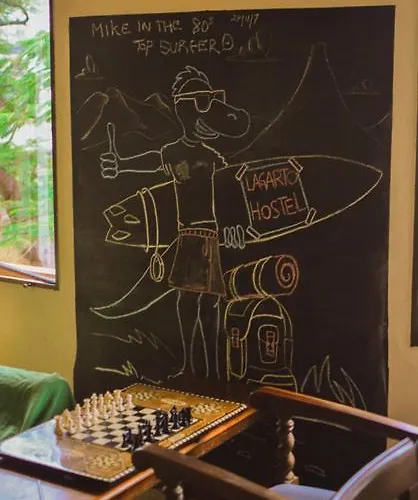 MIKE IN THE 80s
TOP SURFER
LAGARTO
HOSTEL